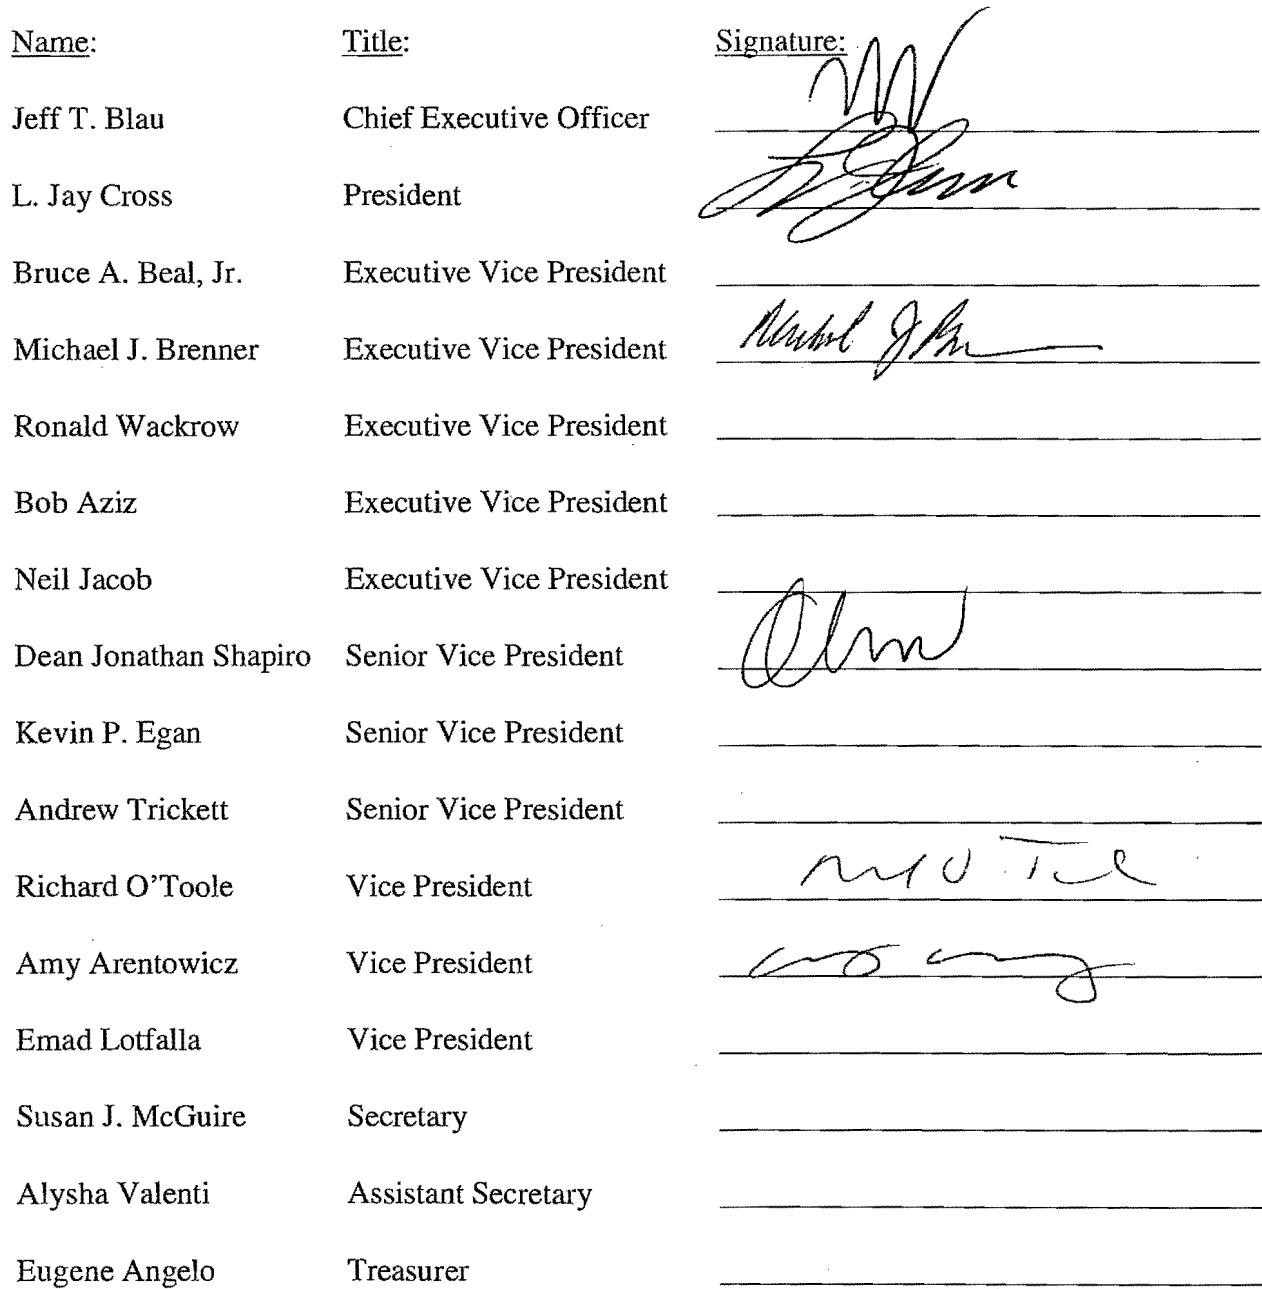 Name: Title: Signature:
Jeff T. Blau Chief Executive Officer
L. Jay Cross President
Bruce A. Beal, Jr. Executive Vice President
Michael J. Brenner Executive Vice President
Ronald Wackrow Executive Vice President
Bob Aziz Executive Vice President
Neil Jacob Executive Vice President
Dean Jonathan Shapiro Senior Vice President
Kevin P. Egan Senior Vice President
Andrew Trickett Senior Vice President
Richard O'Toole Vice President
Amy Arentowicz Vice President
Emad Lotfalla Vice President
Susan J. McGuire Secretary
Alysha Valenti Assistant Secretary
Eugene Angelo Treasurer